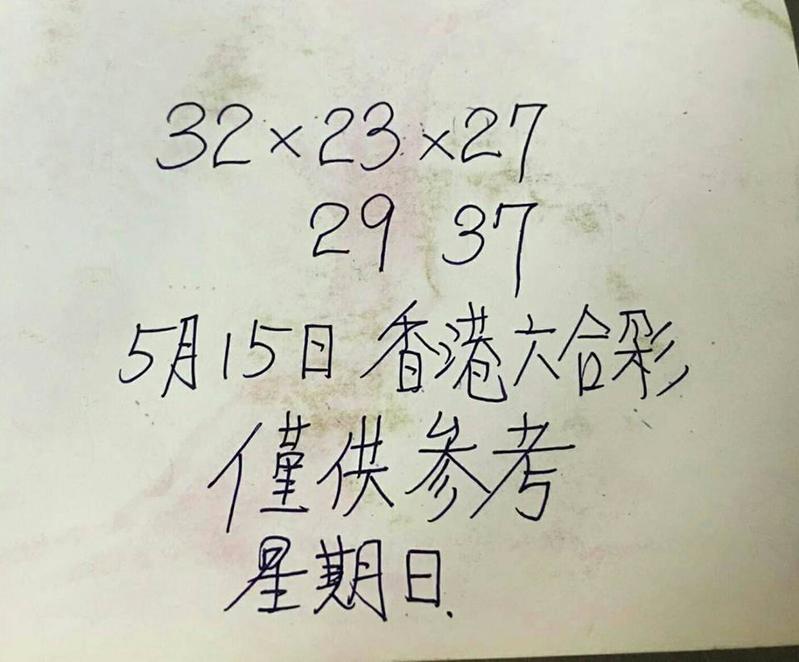 32×23×27
29 37
5月15日 香港六合彩
僅供参考
星期日.